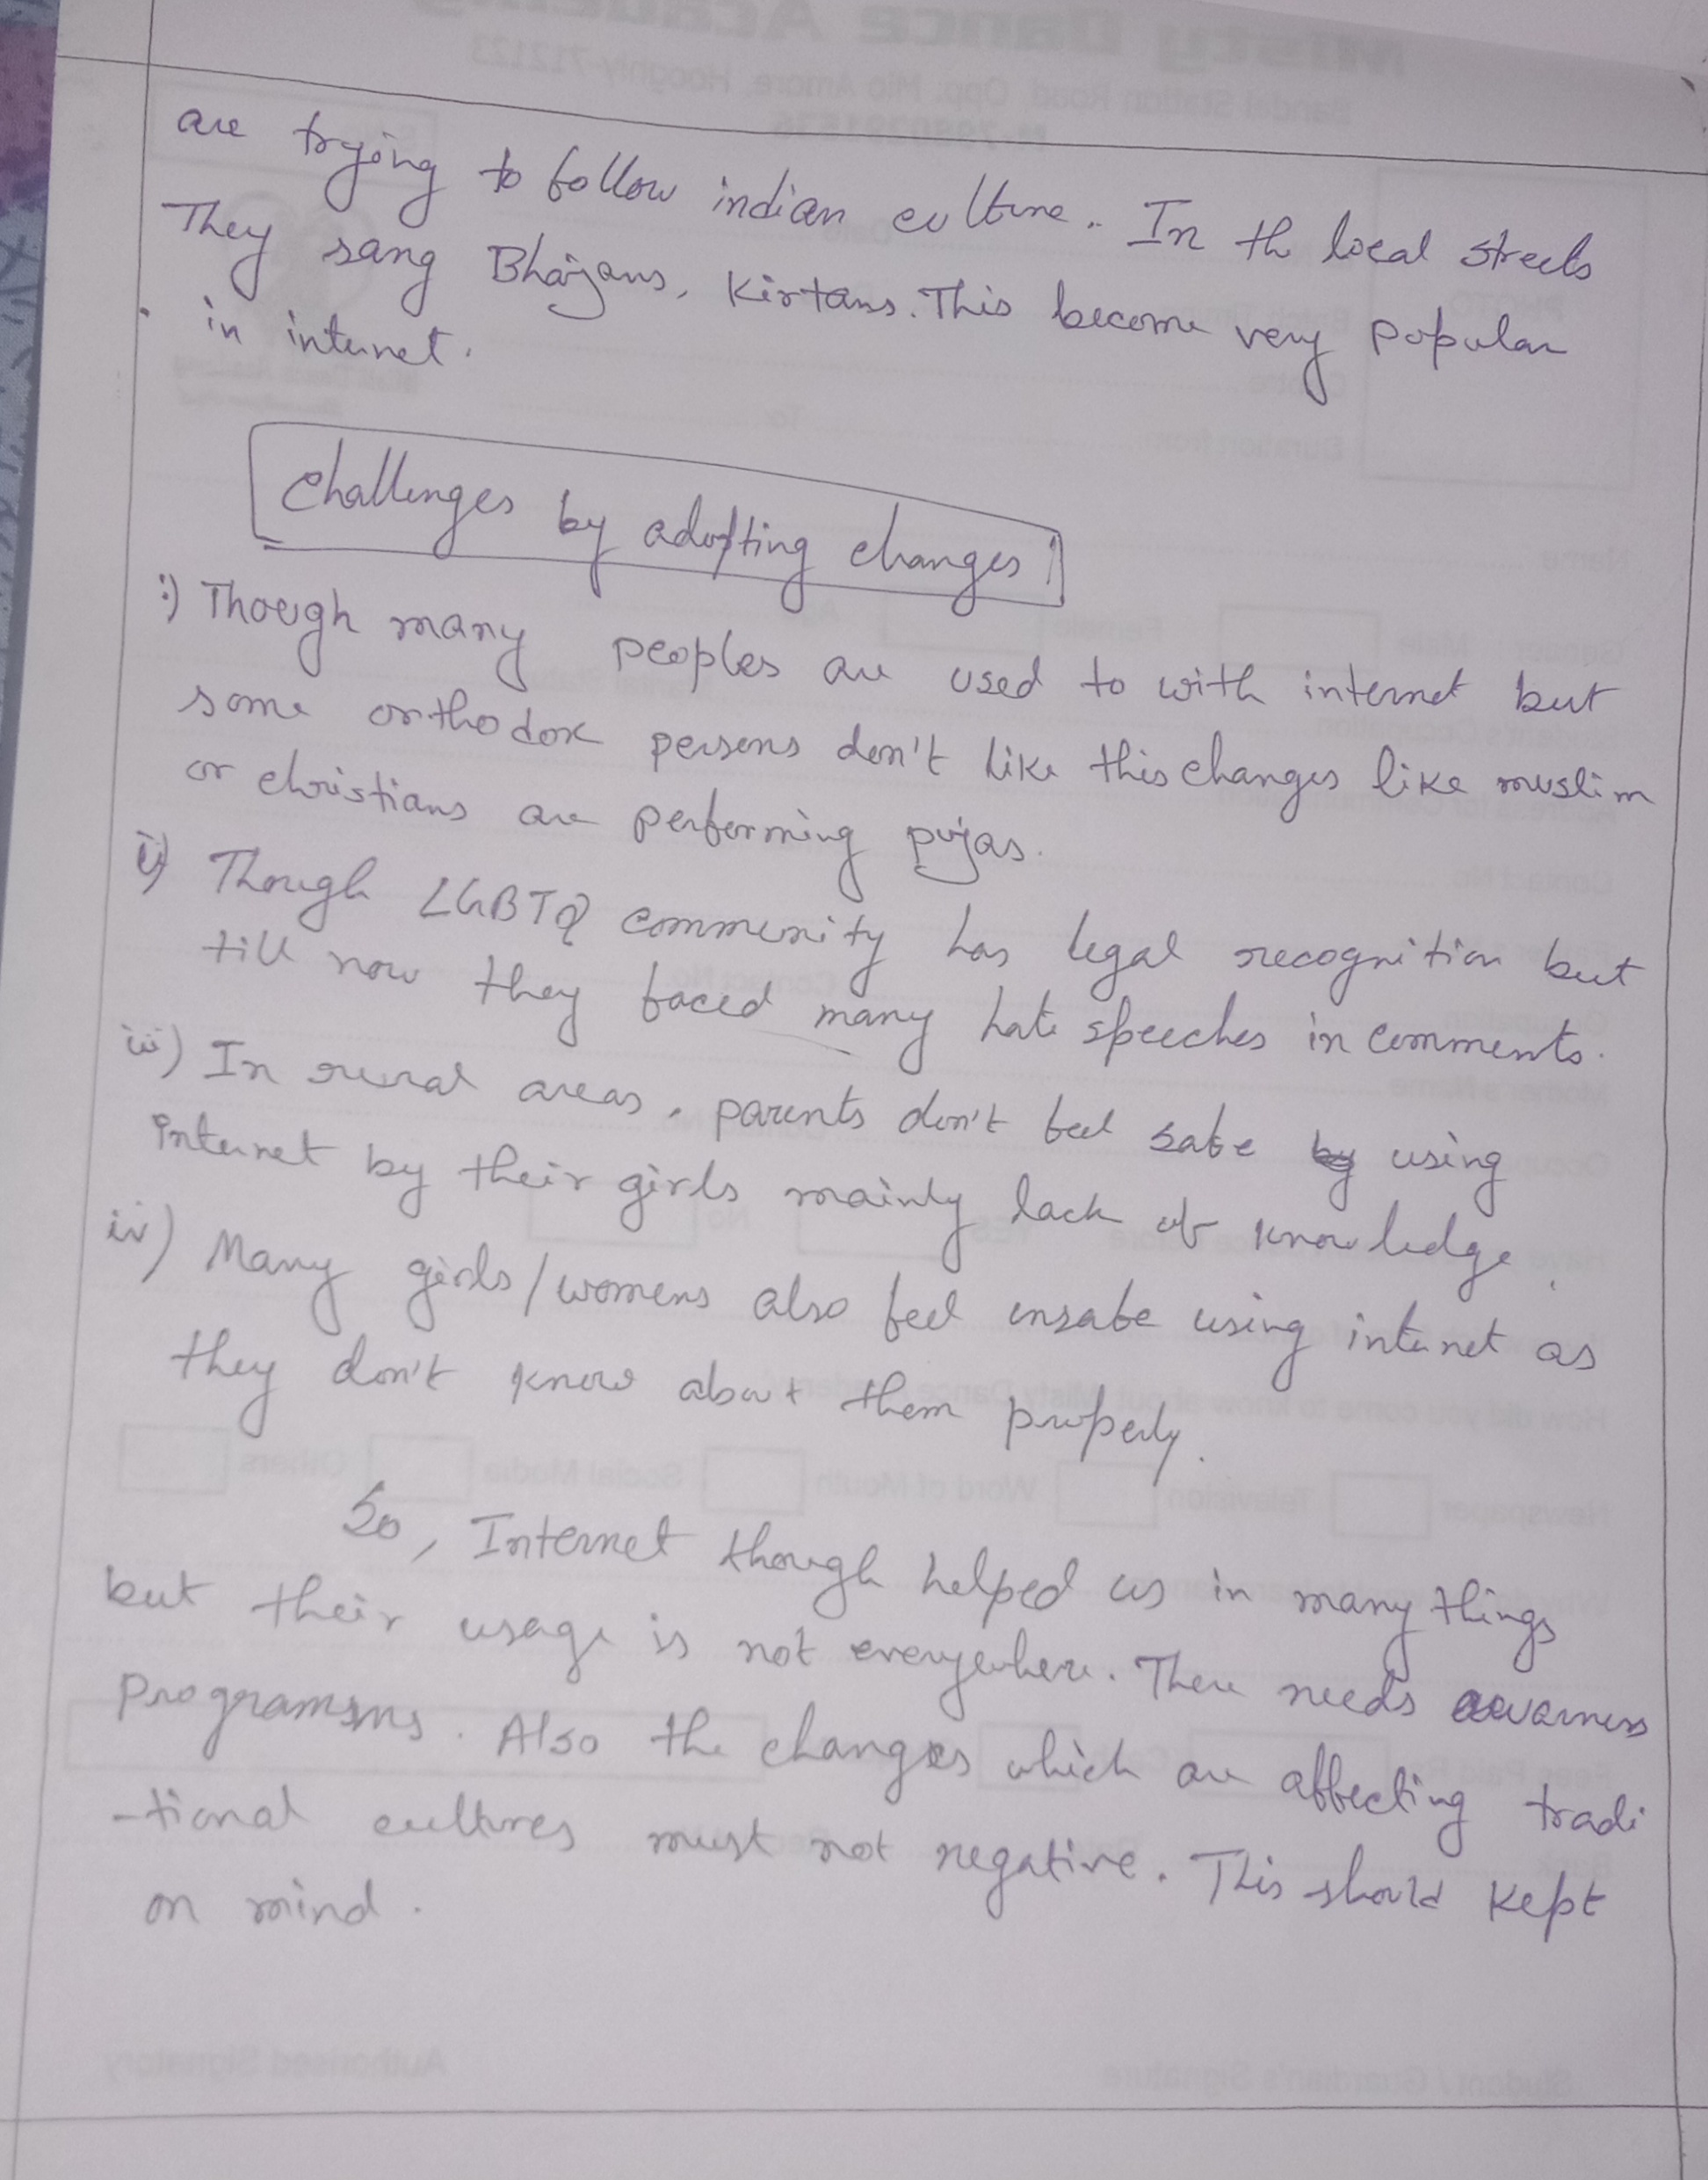 are trying to follow indian culture. In th local streets
They sang Bhajans, Kirtans. This become very popular
in internet.
Challenges by adopting changes
i) Though many peoples are used to with internet but
some orthodox persons don't like this changes like muslim
or christians are performing pujas.
ii) Though LGBTQ community has legal recognition but
till now they faced many hate speeches in comments.
iii) In rural areas, parents don't feel safe using
internet by their girls mainly lack of knowledge.
iv) Many girls/womens also feel unsafe using internet as
they don't know about them properly.
So, Internet though helped us in many things
but their usage is not everywhere. There needs awarness
programms. Also the changes which are affecting tradi
-tional cultures must not negative. This should kept
on mind.